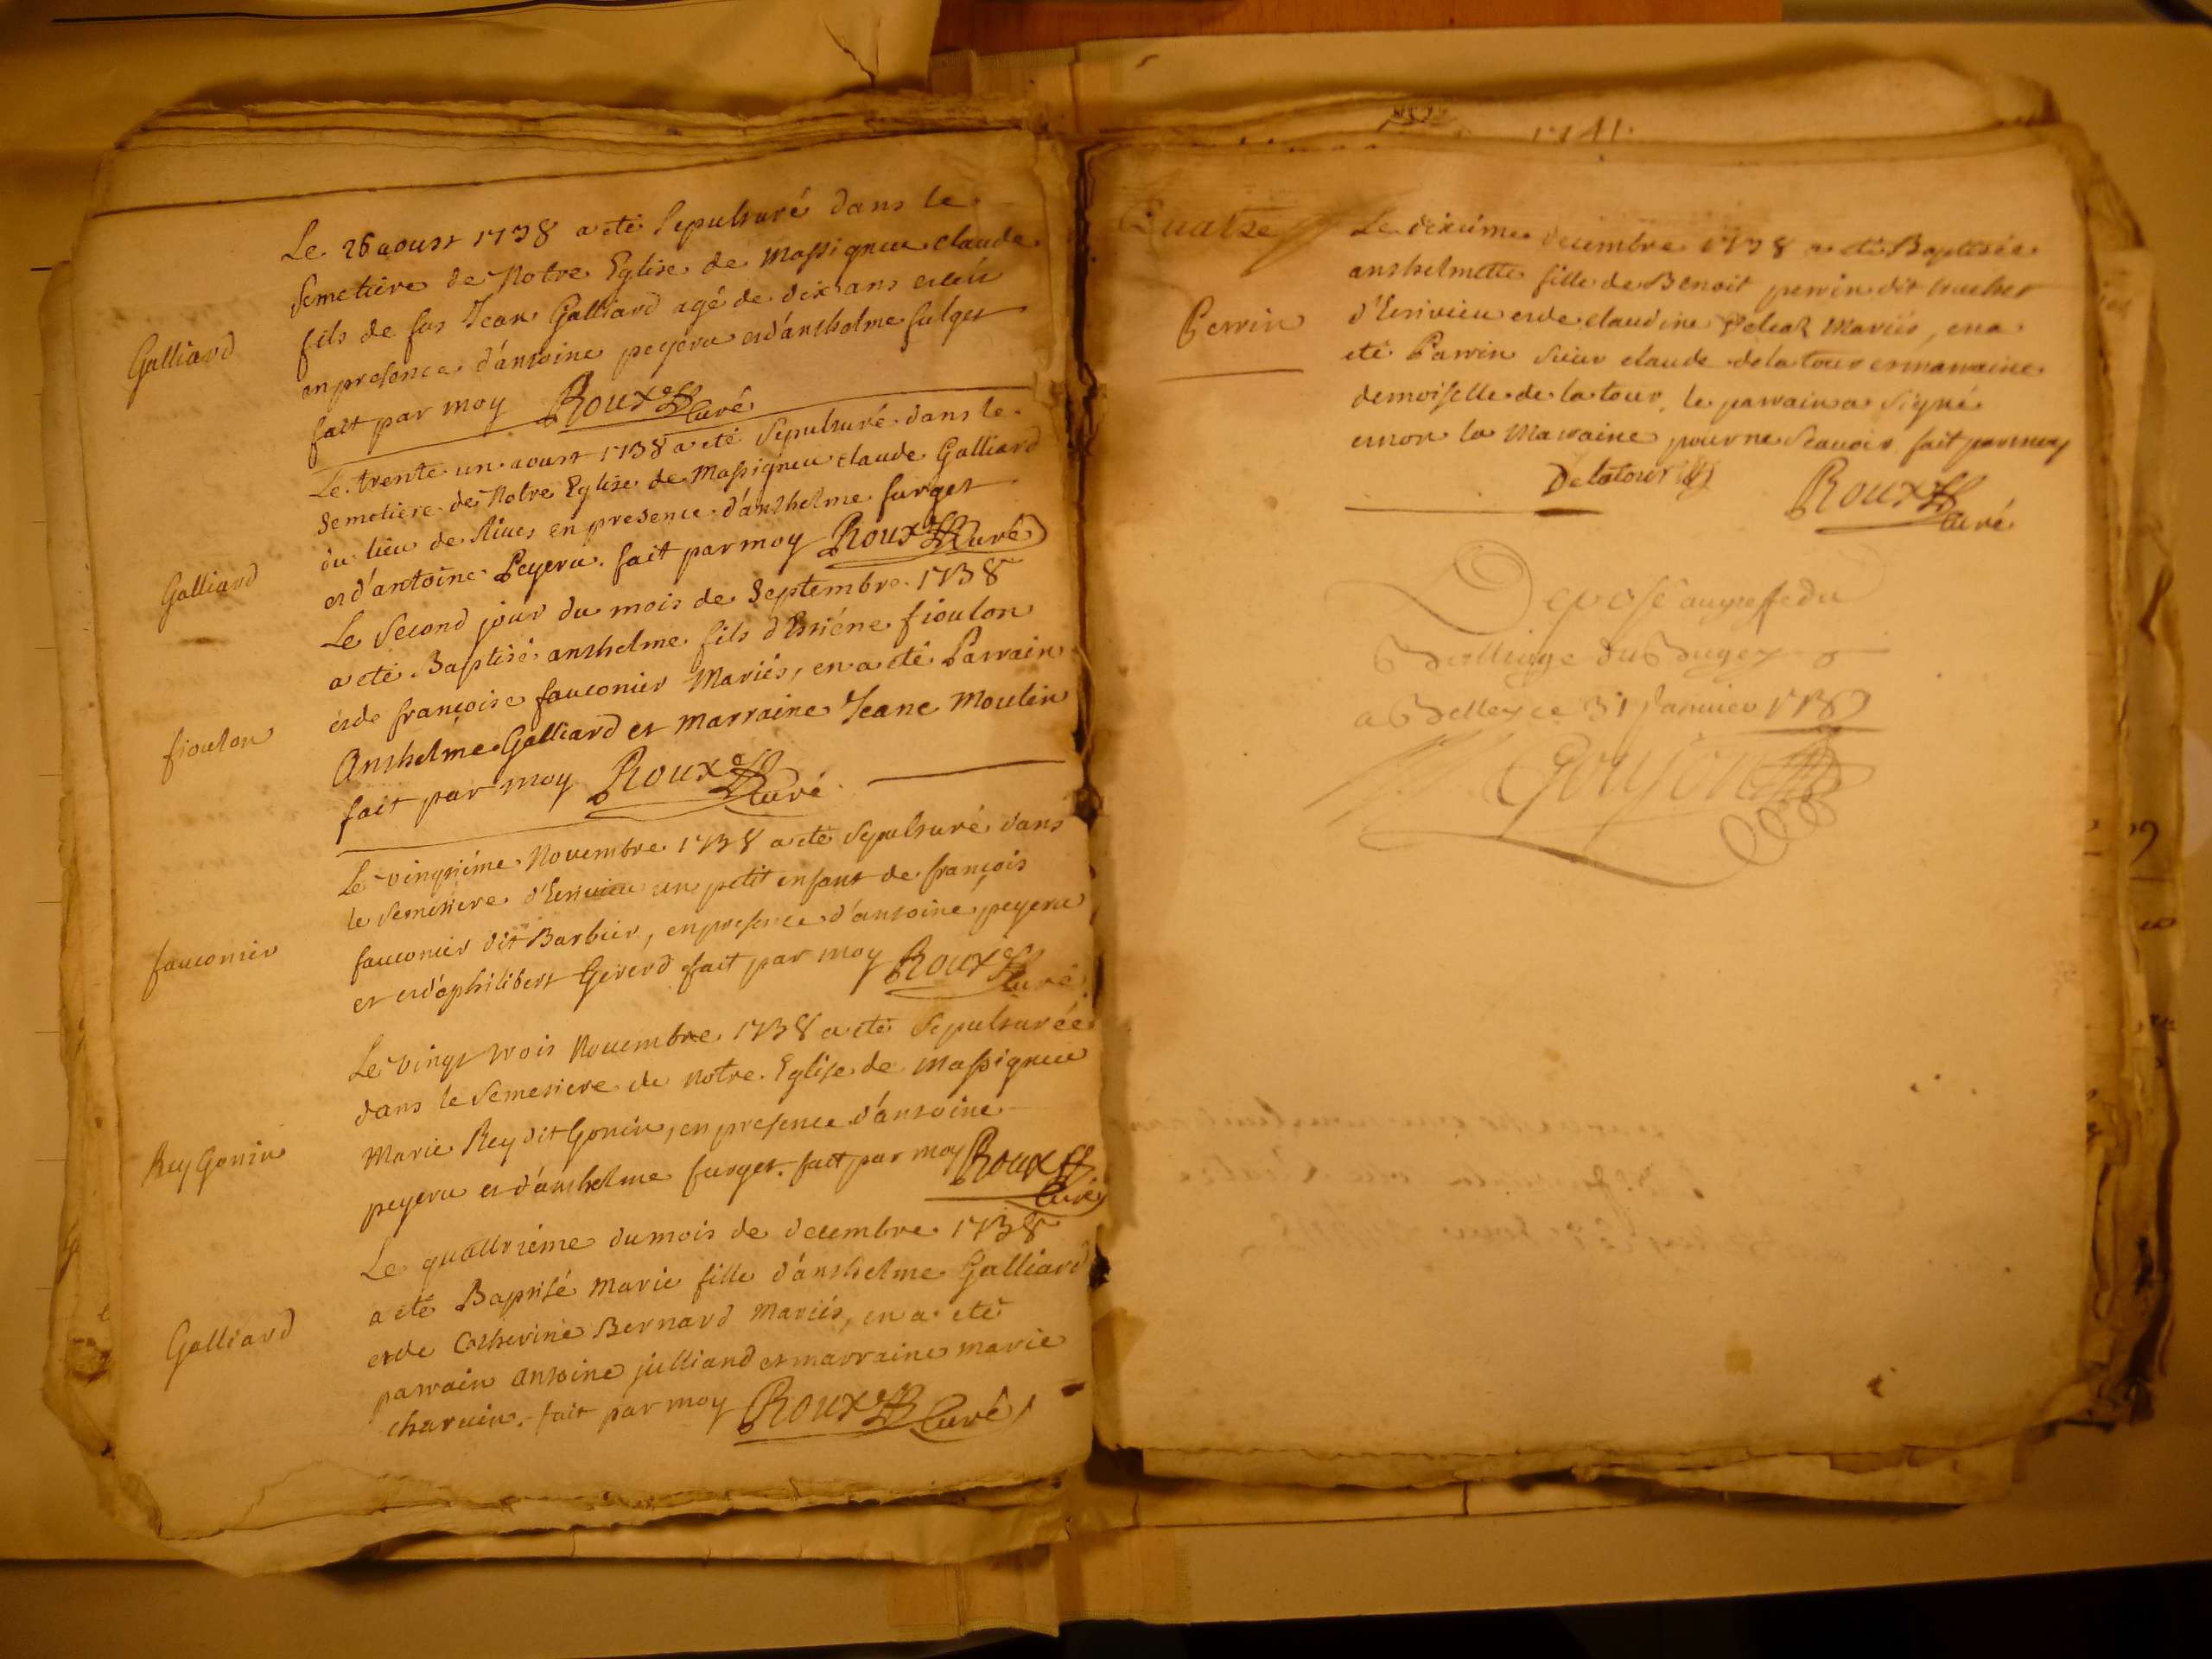 Le 26 aoust 1738 a eté Sepulturé dans le
Semetiere de Notre Eglise de Massignieu claude
Galliard
fils de fus Jean Galliard agé de dix ans
en presence d'antoine peyeru et d'anthelme furget
fait par moy Roux Curé
Le trente un aoust 1738 a eté Sepulturé dans le
Semetiere de Notre Eglise de Massignieu claude Galliard
Galliard
du lieu de Rives en presence d'anthelme furget
et d'antoine Peyeru. fait par moy Roux Curé
Le Second jour du mois de Septembre 1738
a eté Baptisé anthelme fils d'Estiéne fioulon
fioulon
et de françoise fauconier Mariés, en a eté Parrain
Anthelme Galliard et Marraine Jeane Moulin
fait par moy Roux Curé
Le vingtiéme Novembre 1738 a eté Sepulturé dans
le Semetiere d'Ecrivieu un petit enfant de françois
fauconier
fauconier dit Barbier, en presence d'antoine peyeru
et et d'ephilibert Gererd fait par moy Roux Curé
Le vingt trois Novembre 1738 a eté Sepulturée
dans le Semetiere de Notre Eglise de Massignieu
Rey Gonin
Marie Rey dit Gonin, en presence d'antoine
peyeru et d'anthelme furget. fait par moy Roux Curé
Le quattriéme du mois de decembre 1738
a eté Baptisé Marie fille d'anthelme Galliard
Galliard
et de Catherine Bernard Mariés, en a eté
parrain Antoine julliand et marraine marie
charvin. fait par moy Roux Curé
1741.
Quatre
Le dixiéme decembre 1738 a eté Baptisée
anthelmette fille de Benoit perrin dit
Perrin
d'Ecrivieu et de claudine Mariés, en a
eté Parrin Sieur claude de la tour et marraine
demoiselle de la tour, le parrain a Signé
et non la Marraine pour ne Scavoir fait par moy
Delatour
Roux Curé
Deposé au greffe du
Bailliage du Bugey
a Belley ce 31 Janvier 1739
Goujon